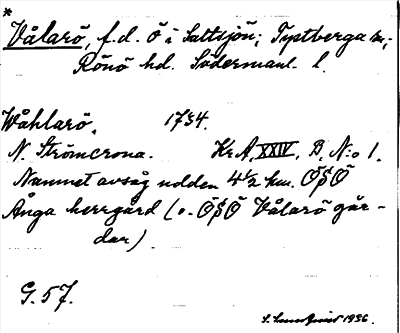 *
Vålarö, f.d. ö i Saltsjön; Tystberga sn;
Rönö hd. Södermanl. l.
Wåhlarö. 1734.
N. Strömcrona. Kr.A, XXIV, B, N:o 1.
Namnet avsåg udden 4 1/2 km. ÖSÖ
Ånga herrgård (o. ÖSÖ Vålarö går-
dar).
G. 57.
S. 1936.